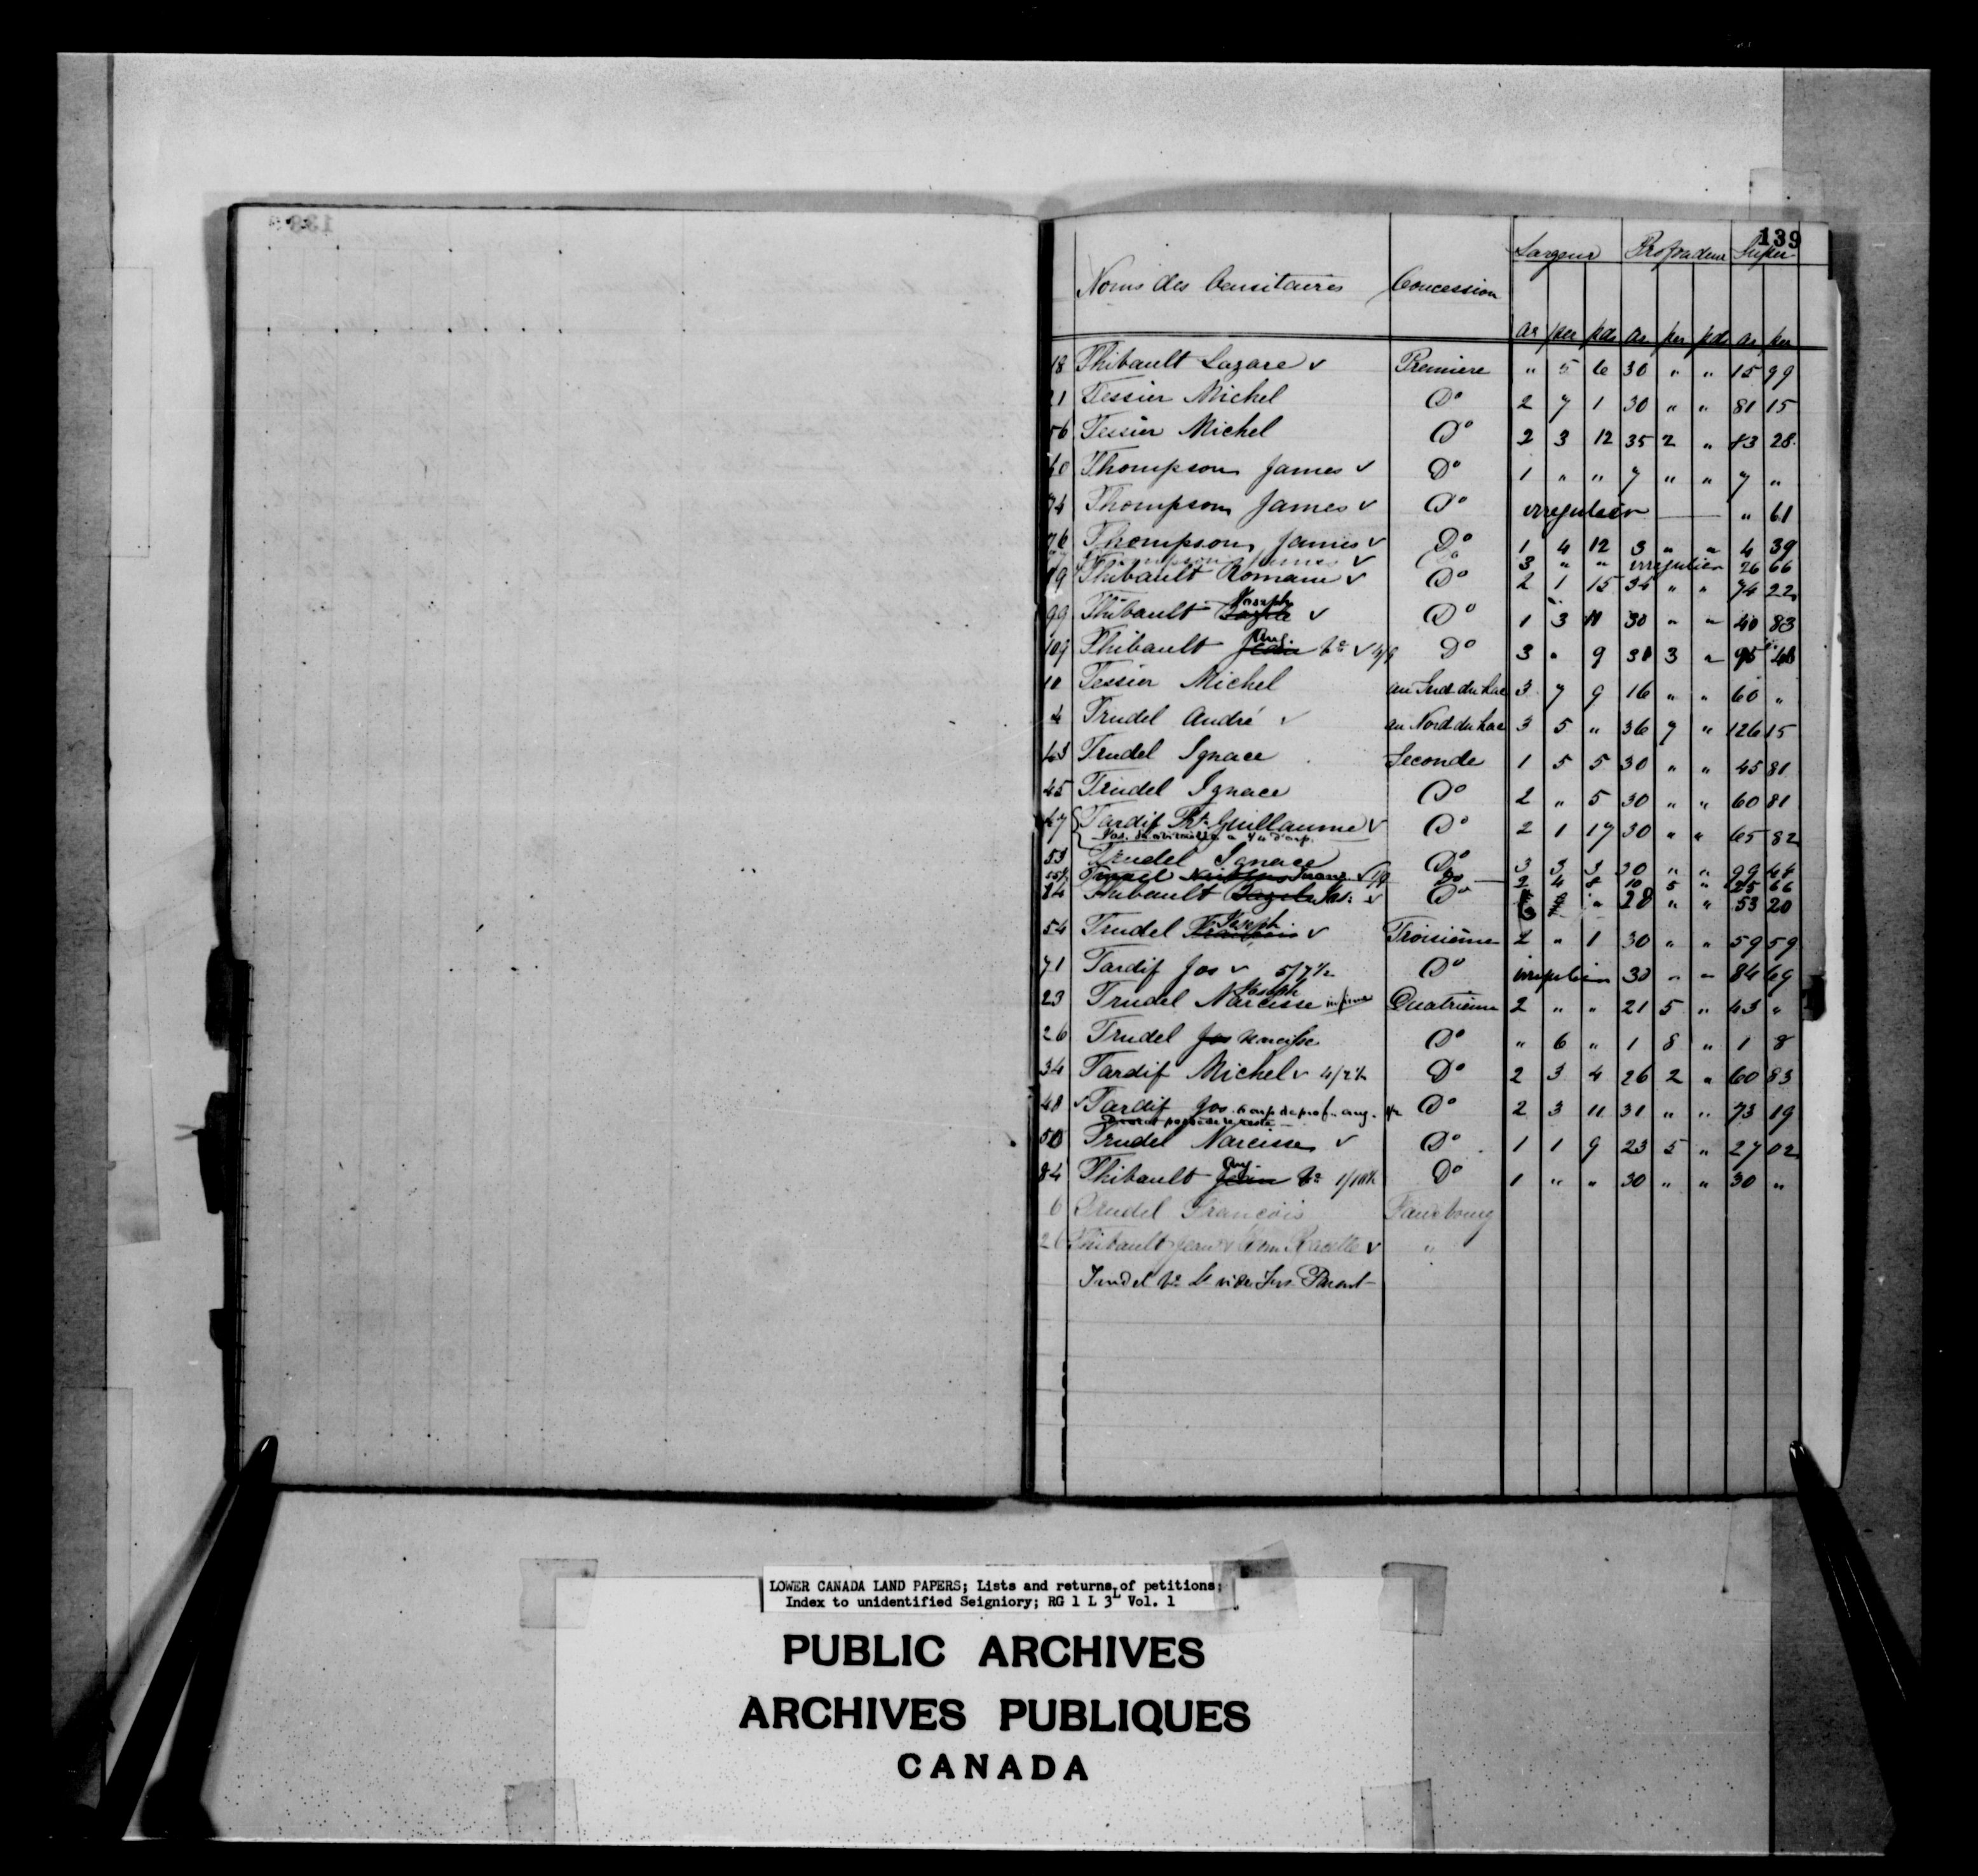 139
Largeur Profondeur Super
Noms des Censitaires Concession
ar per pds ar per pds ar per
18 Thibault Lazare v Premiere " 5 6 30 " " 15 99
21 Tessier Michel Do 2 7 1 30 " " 81 15
56 Tessier Michel Do 2 3 12 35 2 " 83 28
60 Thompson James v Do 1 " " 7 " " 7 "
74 Thompson James v Do irregulier " 61
76 Thompson James v Do 1 4 12 3 " " 4 39
77 Thompson James v Do 3 " " irregulier 26 66
79 Thibault Romain v Do 2 1 15 34 " " 74 22
99 Thibault Joseph v Do 1 3 11 30 " " 40 83
109 Thibault Jean Aug. Ve v 4/9 Do 3 " 9 31 3 " 95 48
10 Tessier Michel au Sud du Lac 3 7 9 16 " " 60 "
4 Trudel André v au Nord du Lac 3 5 " 36 9 " 126 15
43 Trudel Ignace Seconde 1 5 5 30 " " 45 81
45 Trudel Ignace Do 2 " 5 30 " " 60 81
47 Tardif Guillaume v Do 2 1 17 30 " " 65 82
53 Trudel Ignace Do 3 3 3 30 " " 99 44
Franc. Do 2 4 8 10 5 " 25 66
84 Thibault Jos. v Do " 28 " " 53 20
54 Trudel Joseph v Troisième 2 " 1 30 " " 59 59
71 Tardif Jos v 5/7½ Do irregulier 30 " " 84 69
23 Trudel Narcisse Joseph Quatrième 2 " " 21 5 " 43 "
26 Trudel Jos Narcisse Do " 6 " 1 8 " 1 8
34 Tardif Michel v 4/2½ Do 2 3 4 26 2 " 60 83
48 v Tardif Jos arp de prof. aug. Do 2 3 11 31 " " 73 19
50 Trudel Narcisse v Do 1 1 9 23 5 " 27 02
84 Thibault Jean Aug. Ve Do 1 " " 30 " " 30 "
6 Trudel François Faurbourg
26 Thibault Jean v Racette v "
Trudel Ve vide Parent
LOWER CANADA LAND PAPERS; Lists and returns of petitions;
Index to unidentified Seigniory; RG 1 L 3L Vol. 1
PUBLIC ARCHIVES
ARCHIVES PUBLIQUES
CANADA